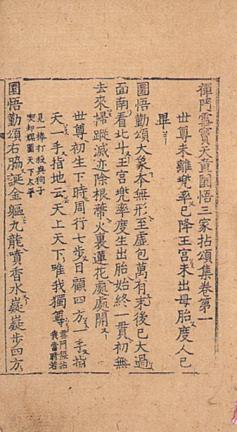 禪門雪竇天童圜悟三家拈頌集卷第一
世尊未離兜率已降王宮未出母胎度人已
畢
圜悟勤頌大象本無形至虛包萬有末後已太過
面南看北斗王宮兜率度生出胎始終一貫初無
去來掃蹤滅迹除根蔕火裏蓮花處處開
世尊初生下時周行七步目顧四方一手指
天一手指地云天上天下唯我獨尊雲門偃拈我當時若
見一棒打殺與狗子喫却啚天下大平
圜悟勤頌右脇誕金軀九龍噴香水嶷嶷步四方